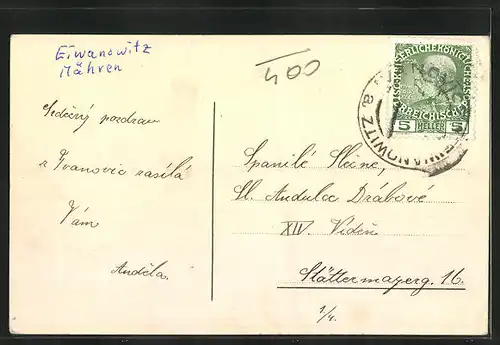 Eiwanowitz
Mähren
400
KAISERLICHE KÖNIGLICHE
ÖSTERREICHISCHE
5 HELLER 5
EIWANOWITZ
Srdečný pozdrav
z Ivanovic zasílá
Vám
Anděla.
Spanilé Slečně,
Sl. Andulce Drábové
XIV. Vídeň
Stättermayerg. 16.
1/4.